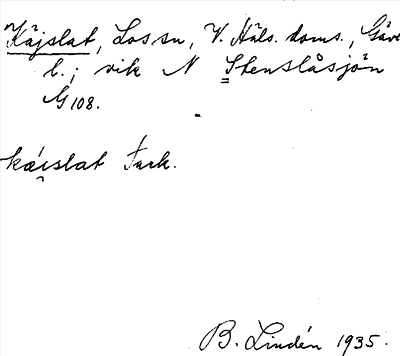 Kåjslat, Los sn, V. Häls. doms., Gävl.
l.; vik N Stenslåsjön
G 108.
kæi̯slat Turk.
B. Lindén 1935.